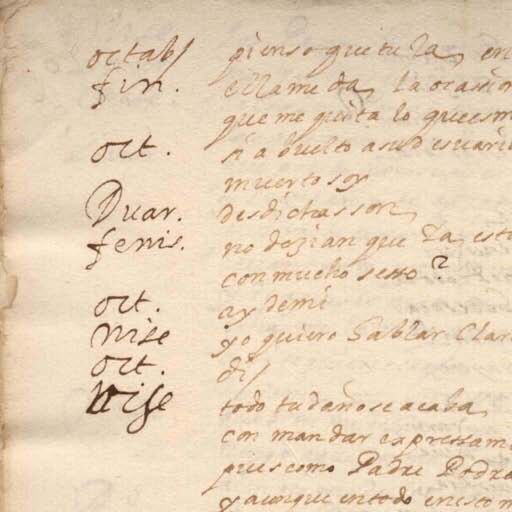 octabº pienso que tu la, en
fin. ella me da, la ocasion
que me quita lo que es m
oct. si a buelto a su desvari
muerto soy
Duar. desdichas son,
fenis. no dezian que ya, est
con mucho sesso?
oct. ay de mi
Nise yo quiero hablar clar
oct. di
Nise todo tu daño se acaba,
con mandar expressam
pues como Padre Podra
y aunque en todo en esto m